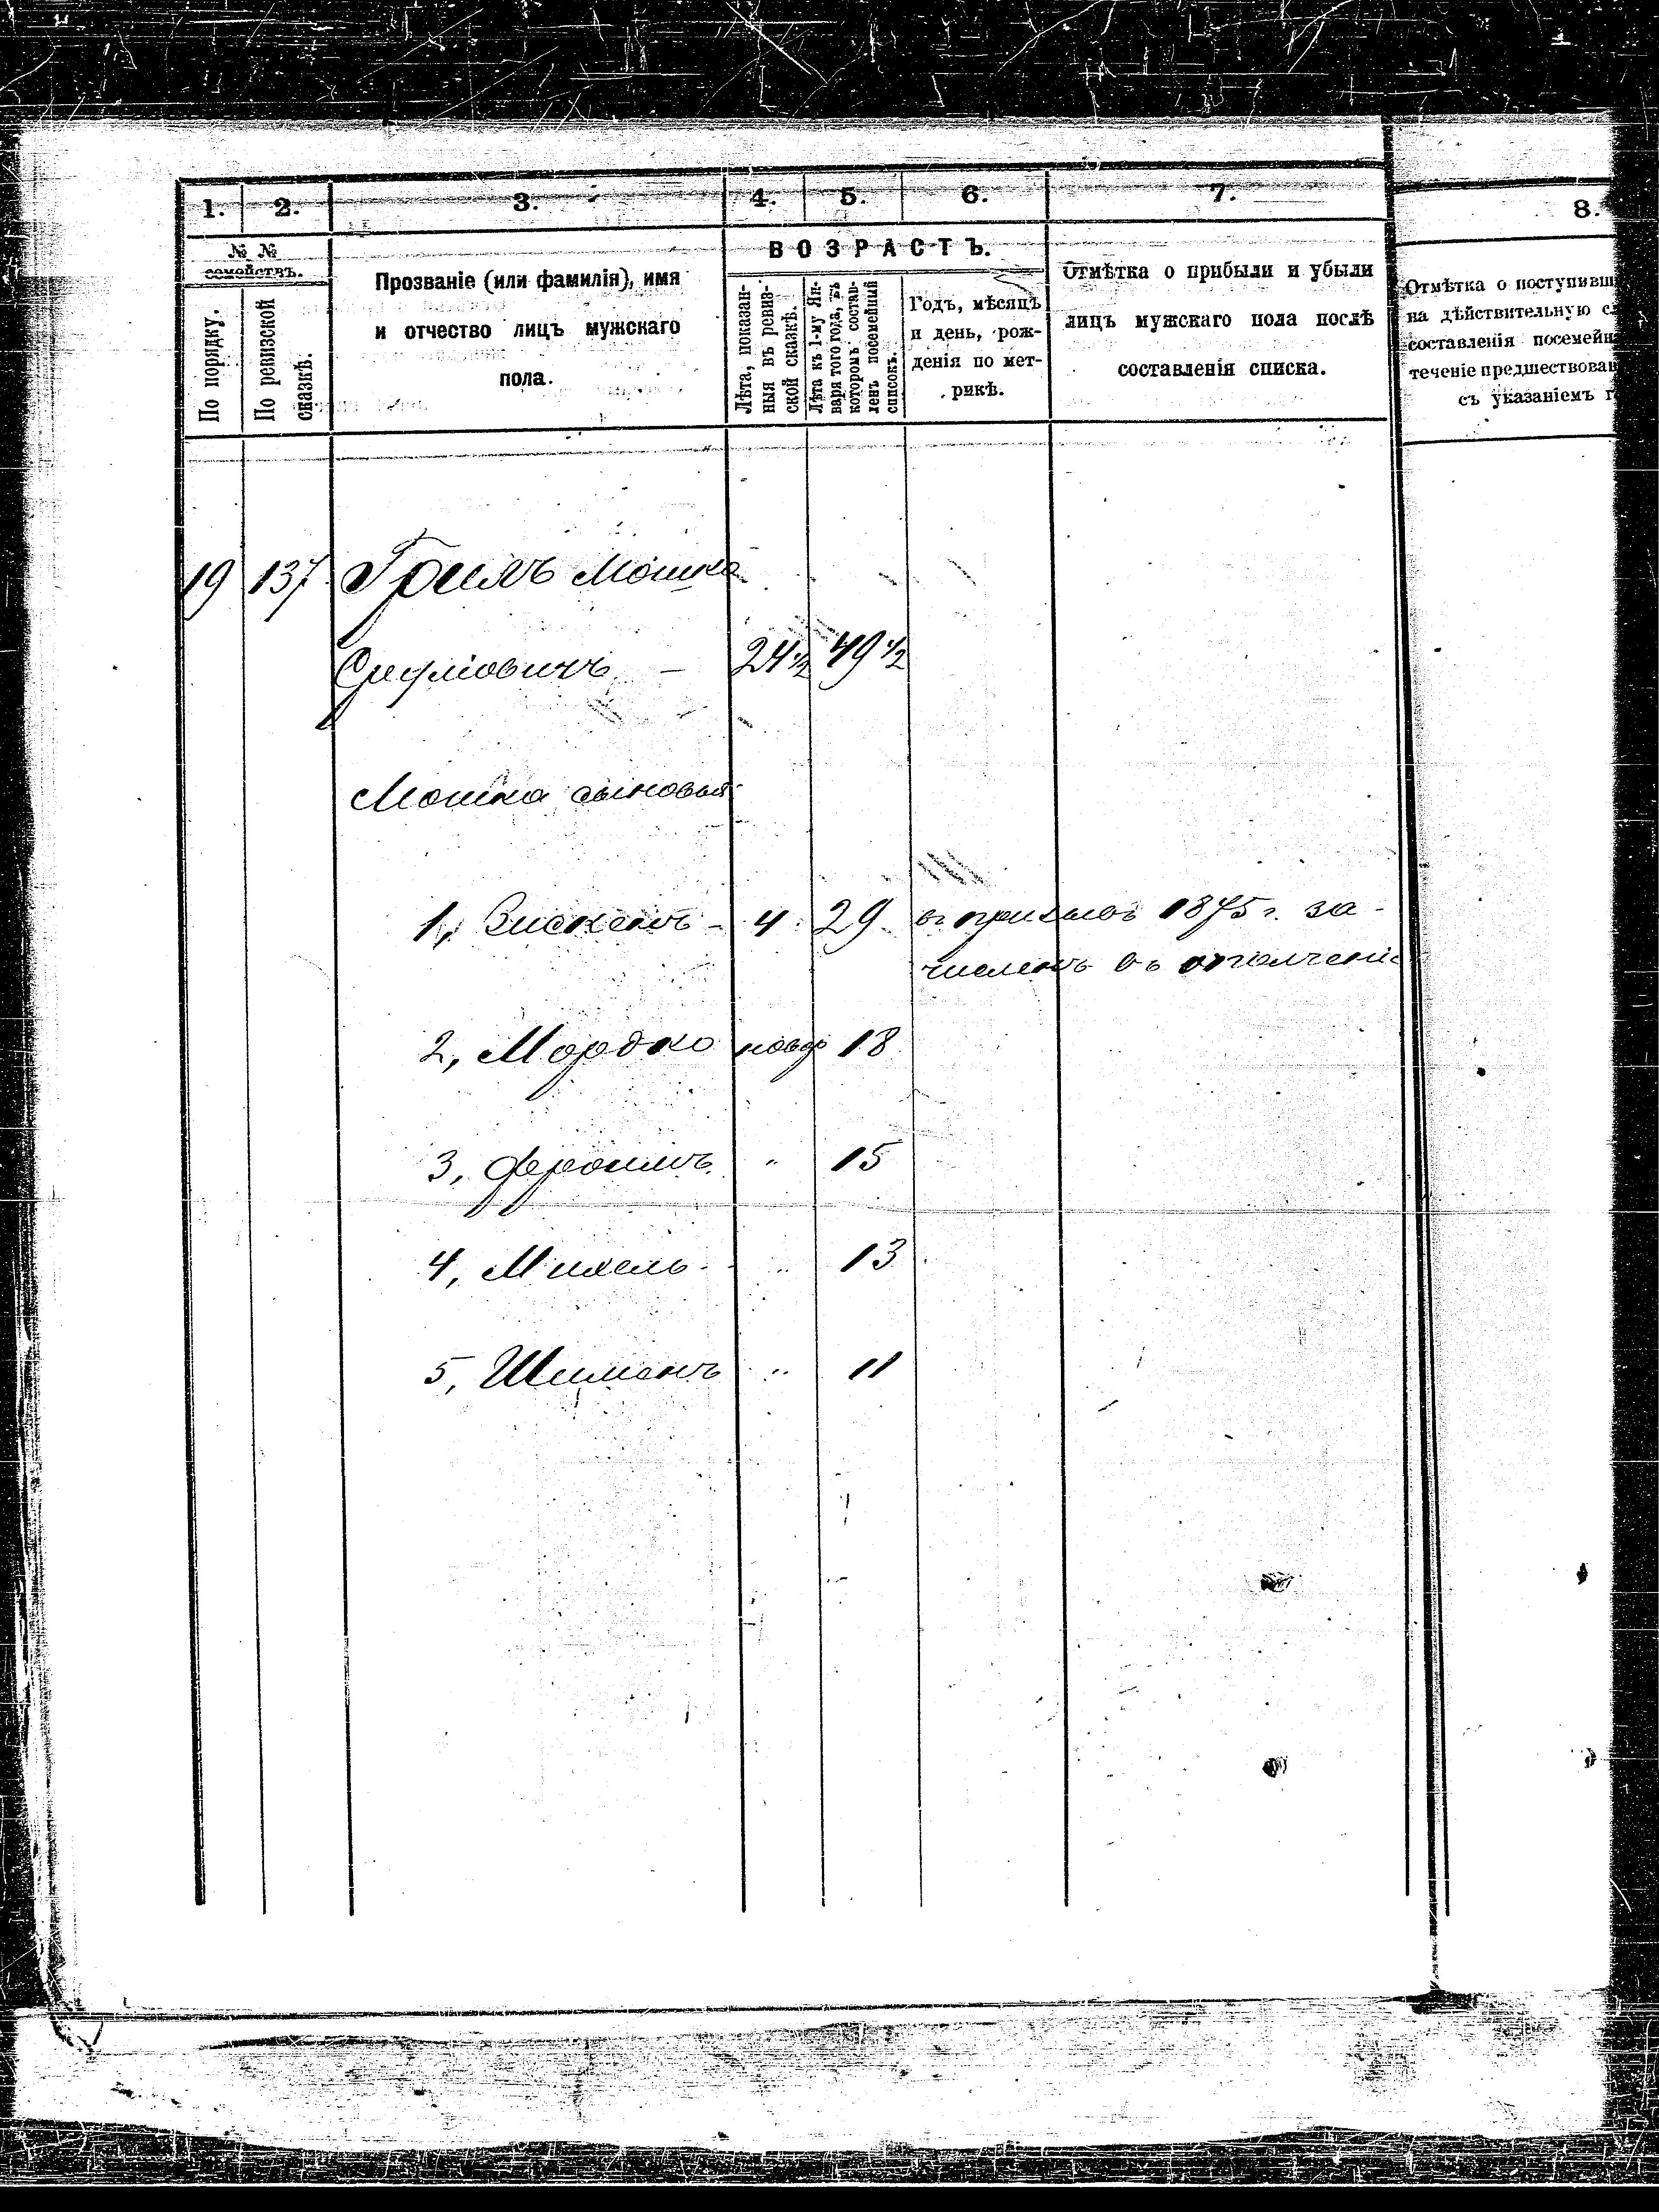 1. 2. 3. 4. 5. 6. 7. 8.
№ №
семействъ.
По порядку.
По ревизской
сказкѣ.
Прозваніе (или фамилія), имя
и отчество лицъ мужскаго
пола.
ВОЗРАСТЪ.
Лѣта, показан-
ныя въ ревиз-
ской сказкѣ.
Лѣта къ 1-му Ян-
варя того года, въ
которомъ состав-
ленъ посемейный
списокъ.
Годъ, мѣсяцъ
и день, рож-
денія по мет-
рикѣ.
Отмѣтка о прибыли и убыли
лицъ мужскаго пола послѣ
составленія списка.
Отмѣтка о поступивш
на дѣйствительную с
составленія посемейн
теченіе предшествова
съ указаніемъ г
19 137 Мошка
24½ 49½
Мошка сыновья
1, 4 29 въ призывъ 1875 г. за-
численъ въ ополченіе
2, Мордко новор 18
3, Фроимъ " 15
4, Михель " 13
5, Шименъ " 11